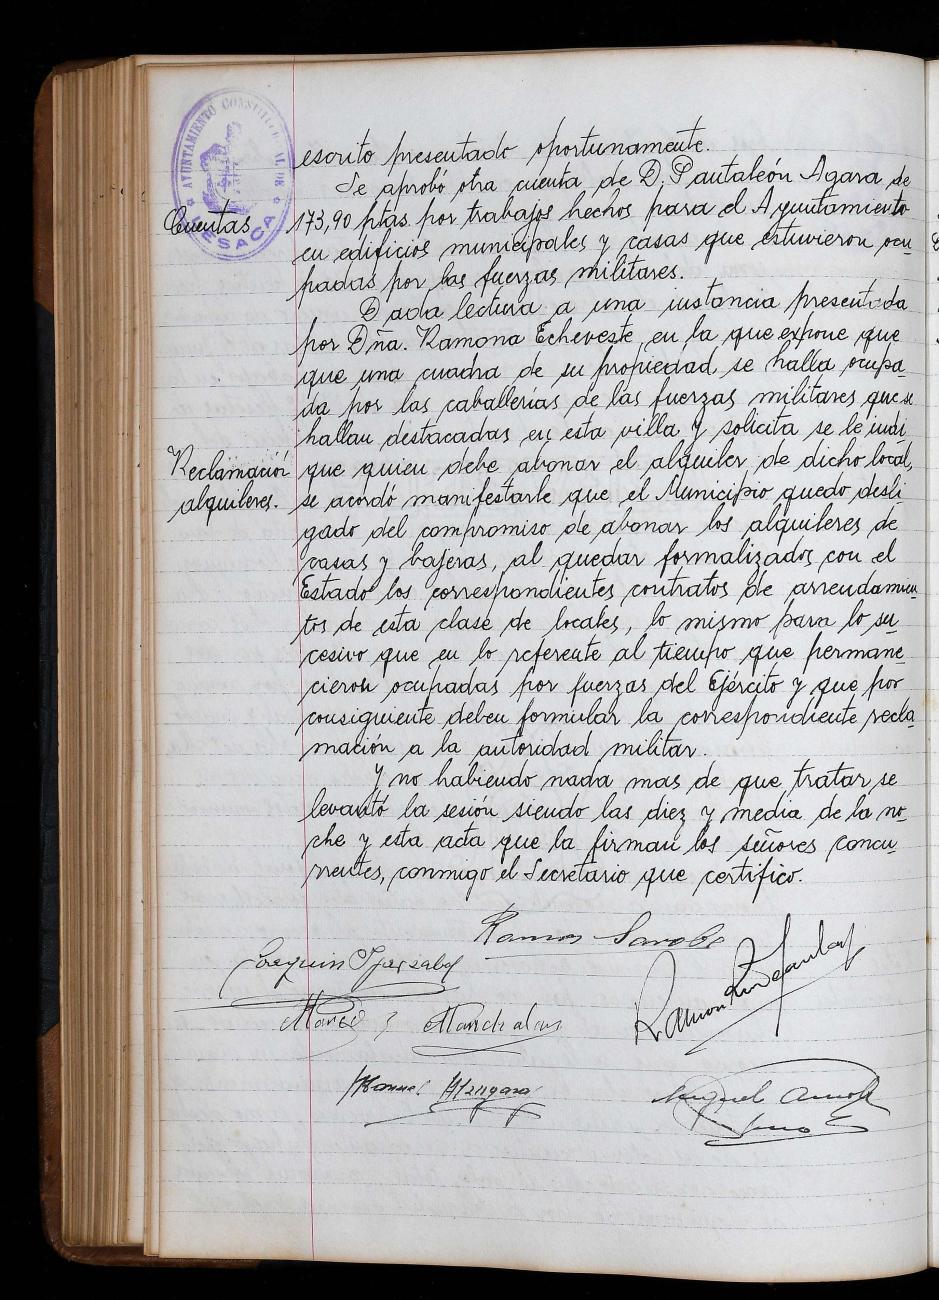 AYUNTAMIENTO CONSTITUCIONAL DE
LESACA
escrito presentado oportunamente.
Se aprobó otra cuenta de D. Pantaleón Agara de
Cuentas 173,90 ptas. por trabajos hechos para el Ayuntamiento
en edificios municipales y casas que estuvieron ocu-
padas por las fuerzas militares.
Dada lectura a una instancia presentada
por Dña. Ramona Echeveste, en la que expone que
que una cuadra de su propiedad se halla ocupa-
da por las caballerías de las fuerzas militares que se
hallan destacadas en esta villa y solicita se le indi-
Reclamación que quien debe abonar el alquiler de dicho local,
alquileres. se acordó manifestarle que el Municipio quedo desli
gado del compromiso de abonar los alquileres de
casas y bajeras, al quedar formalizados con el
Estado los correspondientes contratos de arrendamien
tos de esta clase de locales, lo mismo para lo su-
cesivo que en lo referente al tiempo que permane-
cieron ocupadas por fuerzas del Ejército y que por
consiguiente deben formular la correspondiente recla-
mación a la autoridad militar.
Y no habiendo nada mas de que tratar se
levantó la sesión siendo las diez y media de la no-
che y esta acta que la firman los señores concu-
rrentes, conmigo el Secretario que certifico.
Ramon
Joaquin
Ramon
Marichalar
Manuel
Miguel